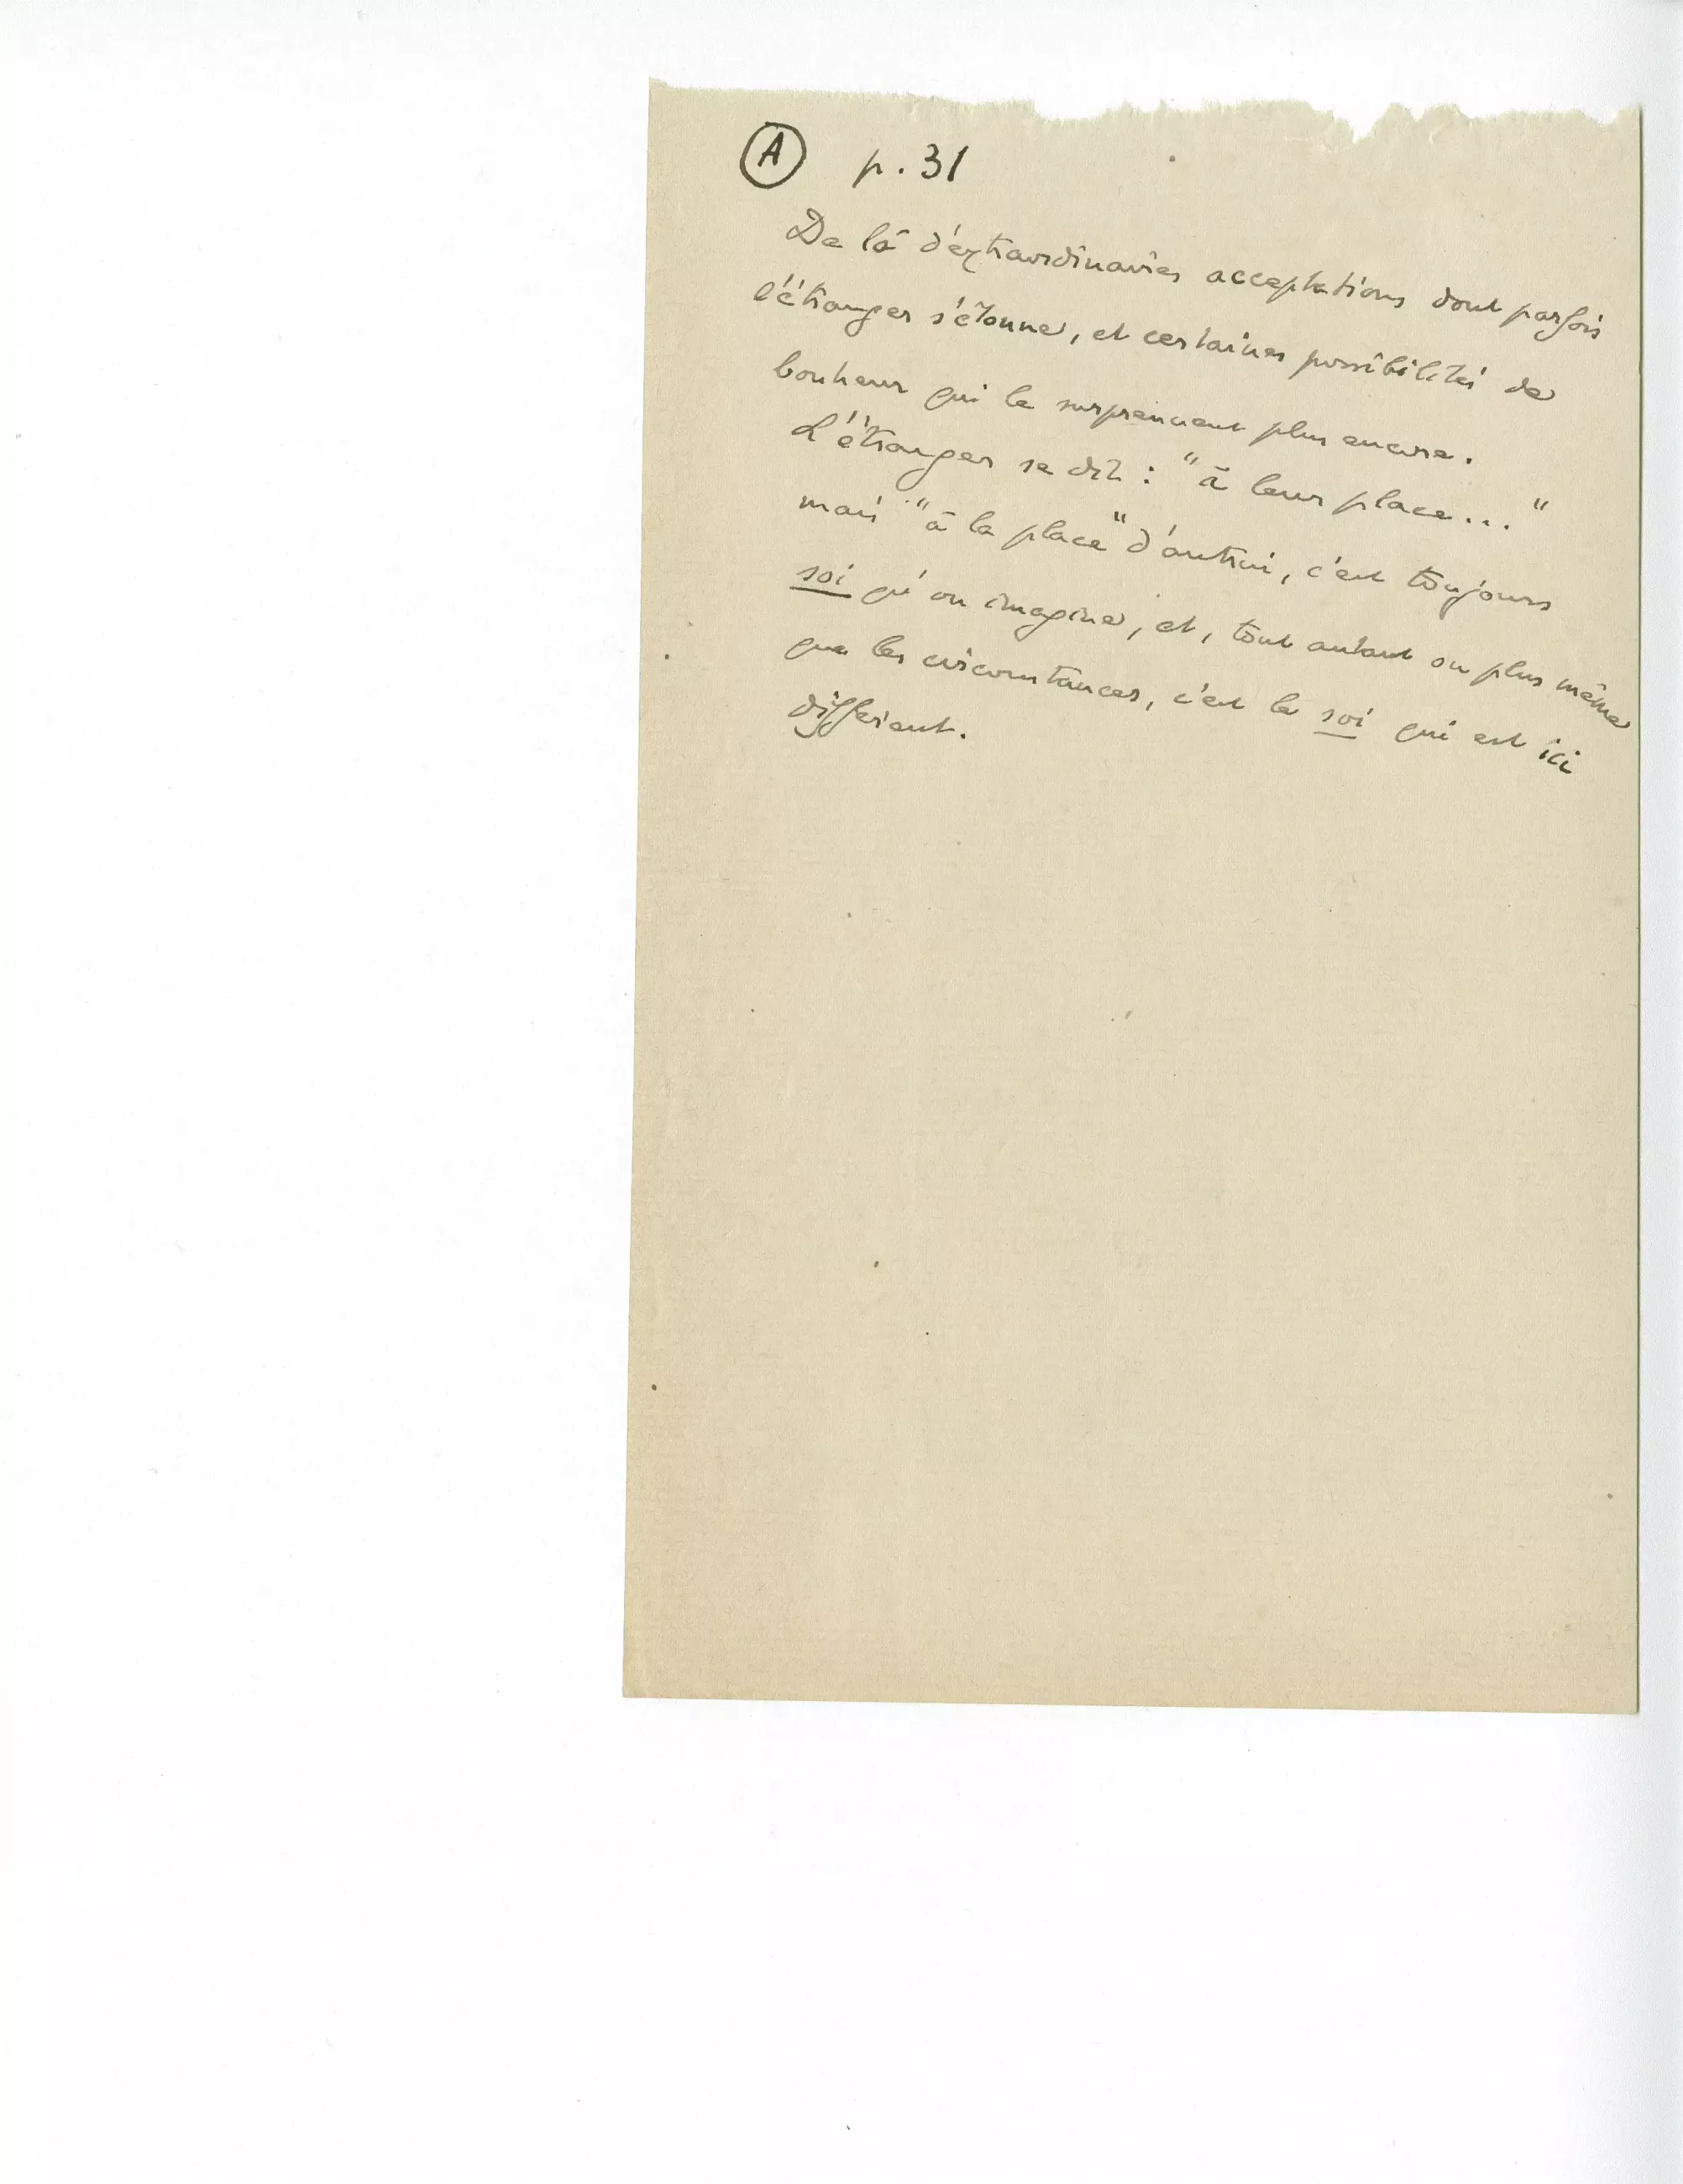 A p. 31
De là d'extraordinaires acceptations dont parfois
l'étranger s'étonne, et certaines possibilités de
bonheur qui le surprennent plus encore.
L'étranger se dit : "à leur place..."
mais "à la place" d'autrui, c'est toujours
soi qu'on imagine, et, tout autant ou plus même
que les circonstances, c'est le soi qui est ici
différent.